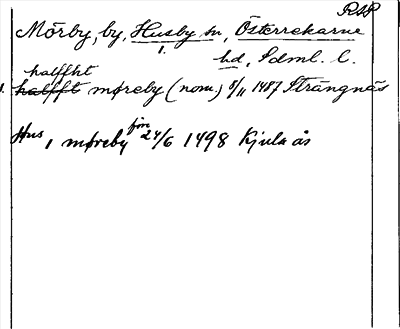 RAP
Mörby, by, Husby sn, Österrekarne
1.
hd, Sdml. l.
halffht
1. halfft møreby (nom.) 8/11 1487 Strängnäs
Hus, møreby före 24/6 1498 Kjula ås